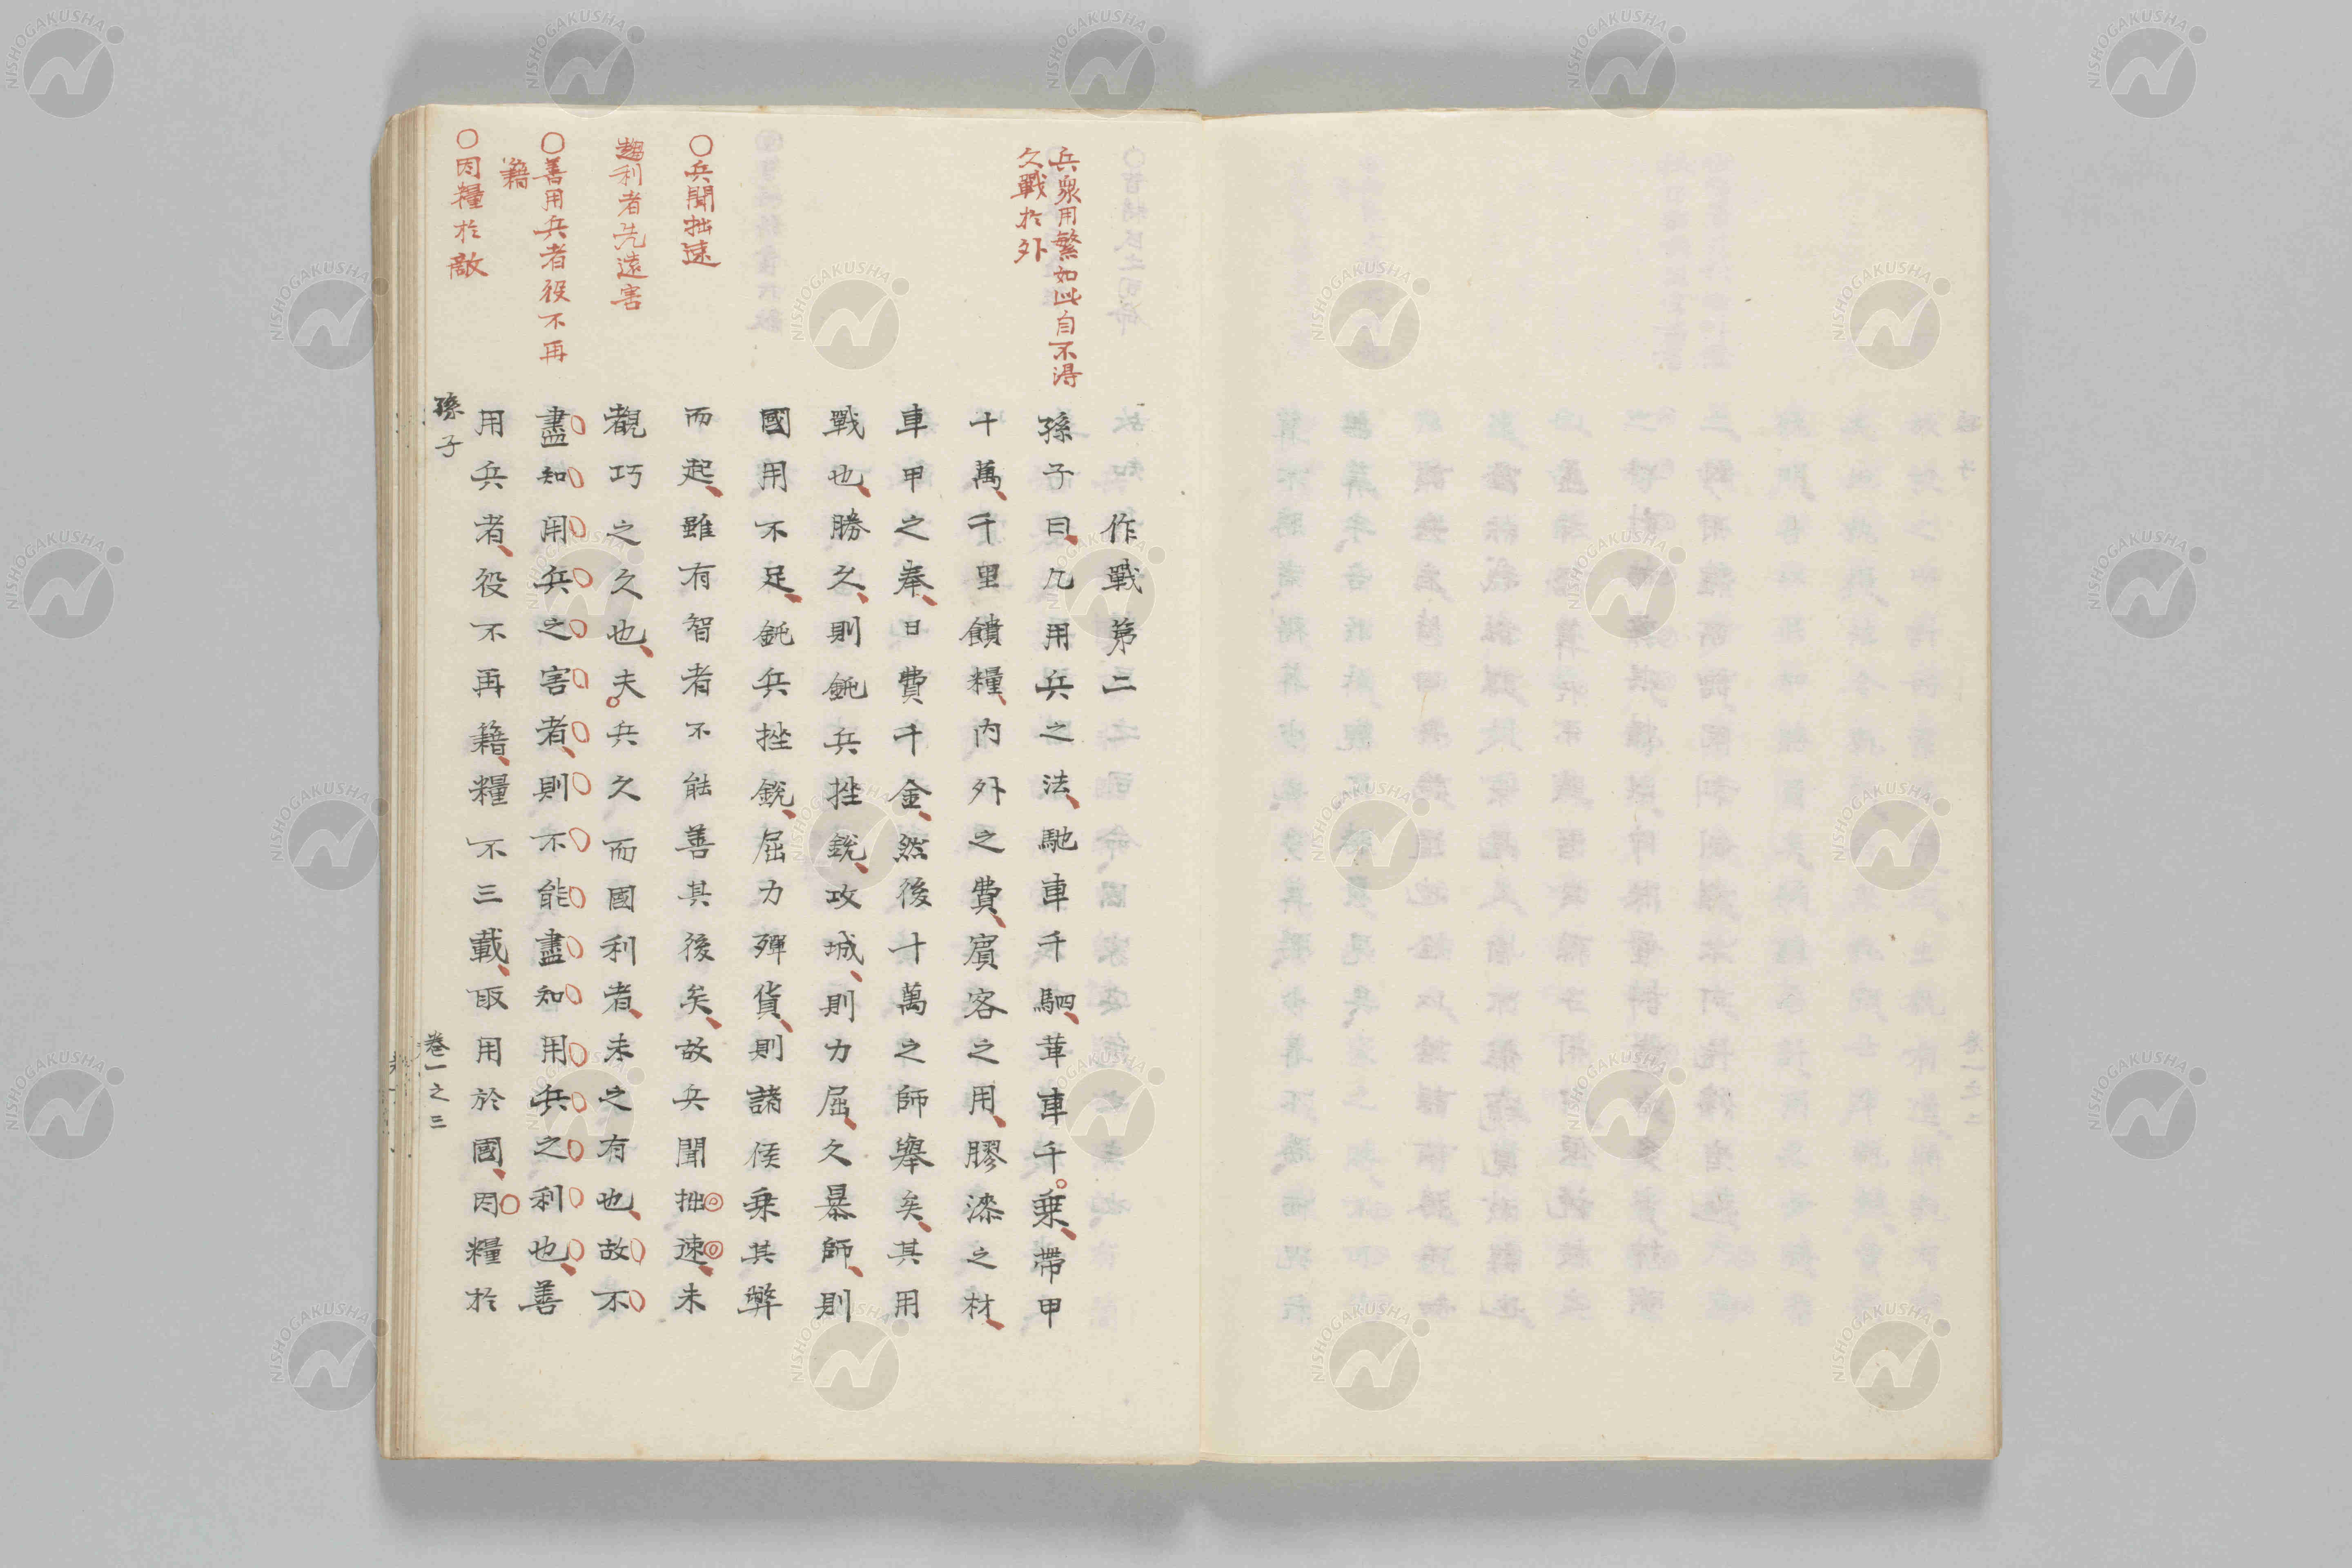 兵衆用繁如此自不得
久戰於外
○兵聞拙速
趨利者先遠害
○善用兵者役不再
籍
○因糧於敵
作戰第二
孫子曰凡用兵之法馳車千駟革車千乗帶甲
十萬千里饋糧内外之費賔客之用膠漆之材
車甲之奉日費千金然後十萬之師舉矣其用
戰也勝久則鈍兵挫銳攻城則力屈久暴師則
國用不足鈍兵挫銳屈力殫貨則諸侯乗其弊
而起雖有智者不能善其後矣故兵聞拙速未
覩巧之久也夫兵久而國利者未之有也故不
盡知用兵之害者則不能盡知用兵之利也善
用兵者役不再籍糧不三載取用於國因糧於
孫子
卷一之三
NISHOGAKUSHA